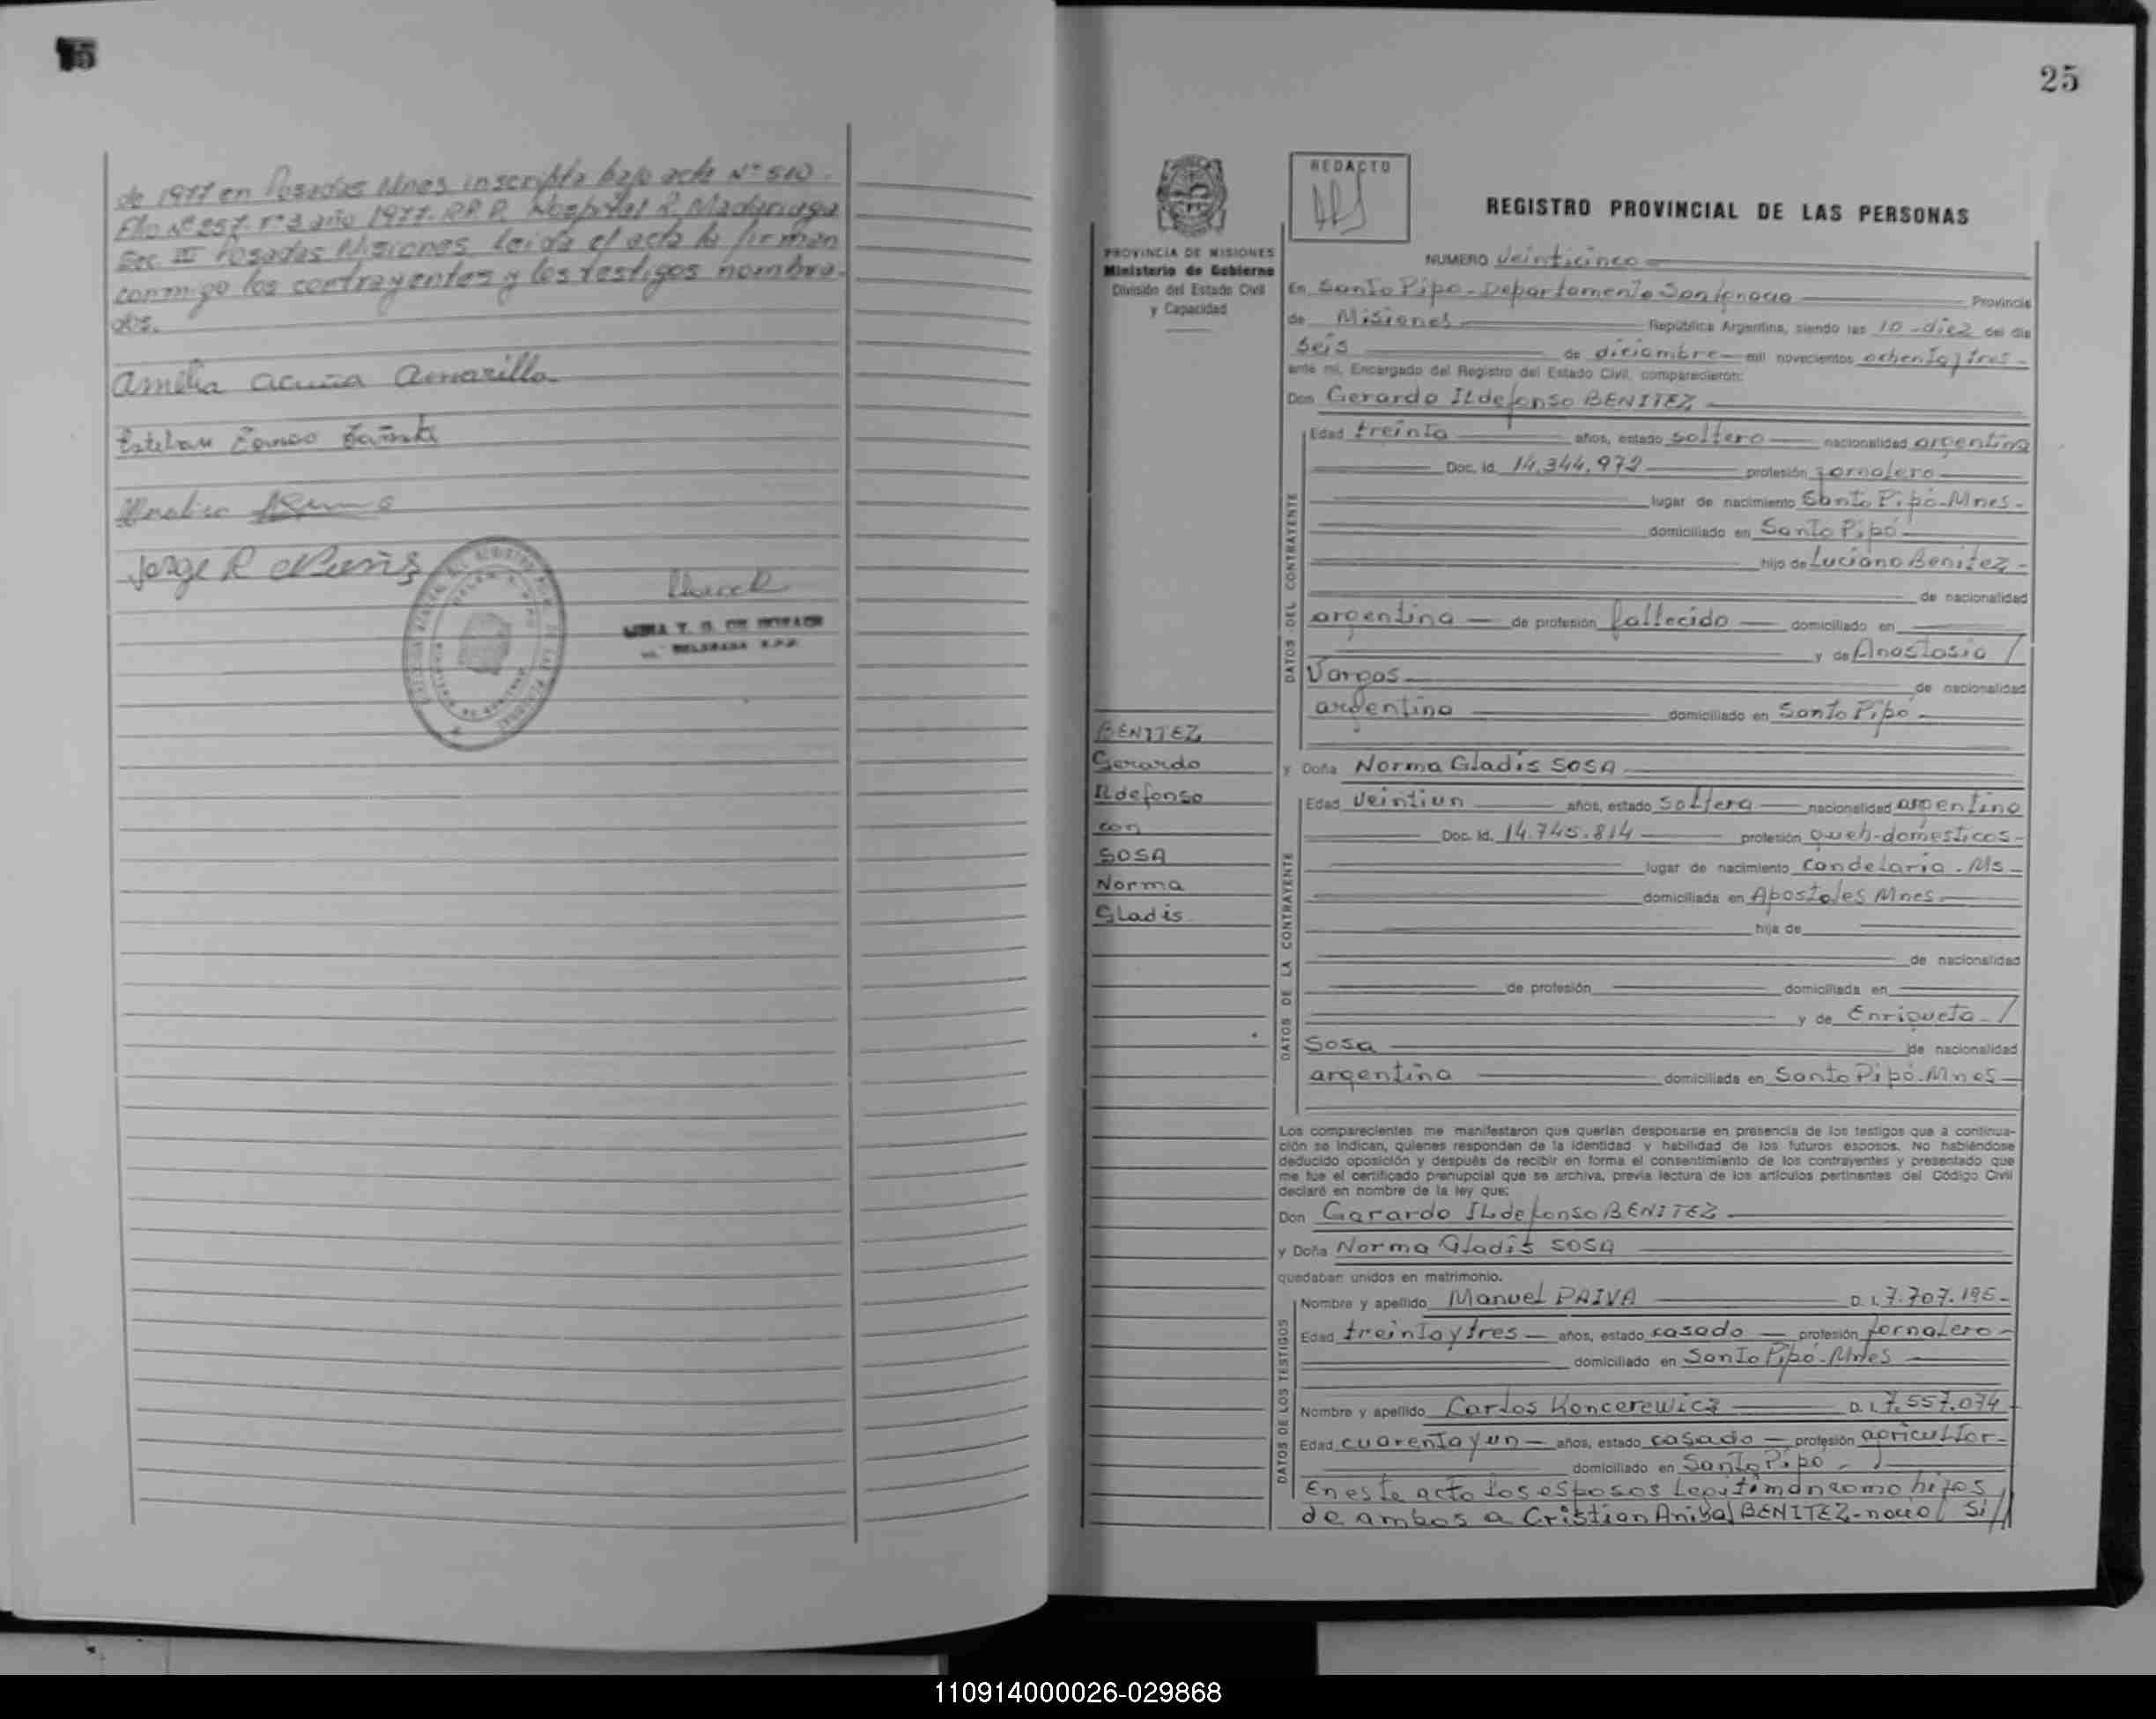 de 1977 en Posadas Mnes inscripta bajo acta Nº 510.
Flio Nº 257. Tº 3 año 1977. R.P.P. Hospital R. Madariaga
Sec. III Posadas Misiones, leida el acta la firman
conmigo los contrayentes y los testigos nombra-
dos.
Amelia Acuña Amarilla
Esteban
Jorge R
25
REDACTO
PROVINCIA DE MISIONES
Ministerio de Gobierno
División del Estado Civil
y Capacidad
REGISTRO PROVINCIAL DE LAS PERSONAS
NUMERO Veinticinco
En Santo Pipo - Departamento San Ignacio Provincia
de Misiones República Argentina, siendo las 10 - diez del día
Seis de diciembre mil novecientos ochenta y tres -
ante mí, Encargado del Registro del Estado Civil, comparecieron:
Don Gerardo ILdefonso BENITEZ
DATOS DEL CONTRAYENTE
Edad treinta años, estado soltero nacionalidad argentina
Doc. Id. 14.344.972 profesión jornalero
lugar de nacimiento Santo Pipó - Mnes -
domiciliado en Santo Pipó
hijo de Luciano Benitez -
de nacionalidad
argentina de profesión fallecido domiciliado en
y de Anastasia /
Vargas de nacionalidad
argentina domiciliado en Santo Pipó
y Doña Norma Gladis SOSA
BENITEZ
Gerardo
ILdefonso
con
SOSA
Norma
Gladis
DATOS DE LA CONTRAYENTE
Edad Veintiun años, estado soltera nacionalidad argentina
Doc. Id. 14.745.814 profesión queh-domésticos -
lugar de nacimiento Candelaria - Ms -
domiciliada en Apostoles Mnes
hija de
de nacionalidad
de profesión domiciliada en
y de Enriqueta - /
Sosa de nacionalidad
argentina domiciliada en Santo Pipó - Mnes
Los comparecientes me manifestaron que querían desposarse en presencia de los testigos que a continua-
ción se indican, quienes responden de la identidad y habilidad de los futuros esposos. No habiéndose
deducido oposición y después de recibir en forma el consentimiento de los contrayentes y presentado que
me fue el certificado prenupcial que se archiva, previa lectura de los artículos pertinentes del Código Civil
declaré en nombre de la ley que:
Don Gerardo ILdefonso BENITEZ
y Doña Norma Gladis SOSA
quedaban unidos en matrimonio.
DATOS DE LOS TESTIGOS
Nombre y apellido Manuel PAIVA D. I. 7.707.195 -
Edad treinta y tres años, estado casado profesión jornalero
domiciliado en Santo Pipó - Mnes
Nombre y apellido Carlos Koncerewicz D. I. 7.557.074
Edad cuarenta y un años, estado casado profesión agricultor -
domiciliado en Santo Pipo
En este acto los esposos Legitiman como hijos
de ambos a Cristian Anibal BENITEZ - nacio Si//
110914000026-029868